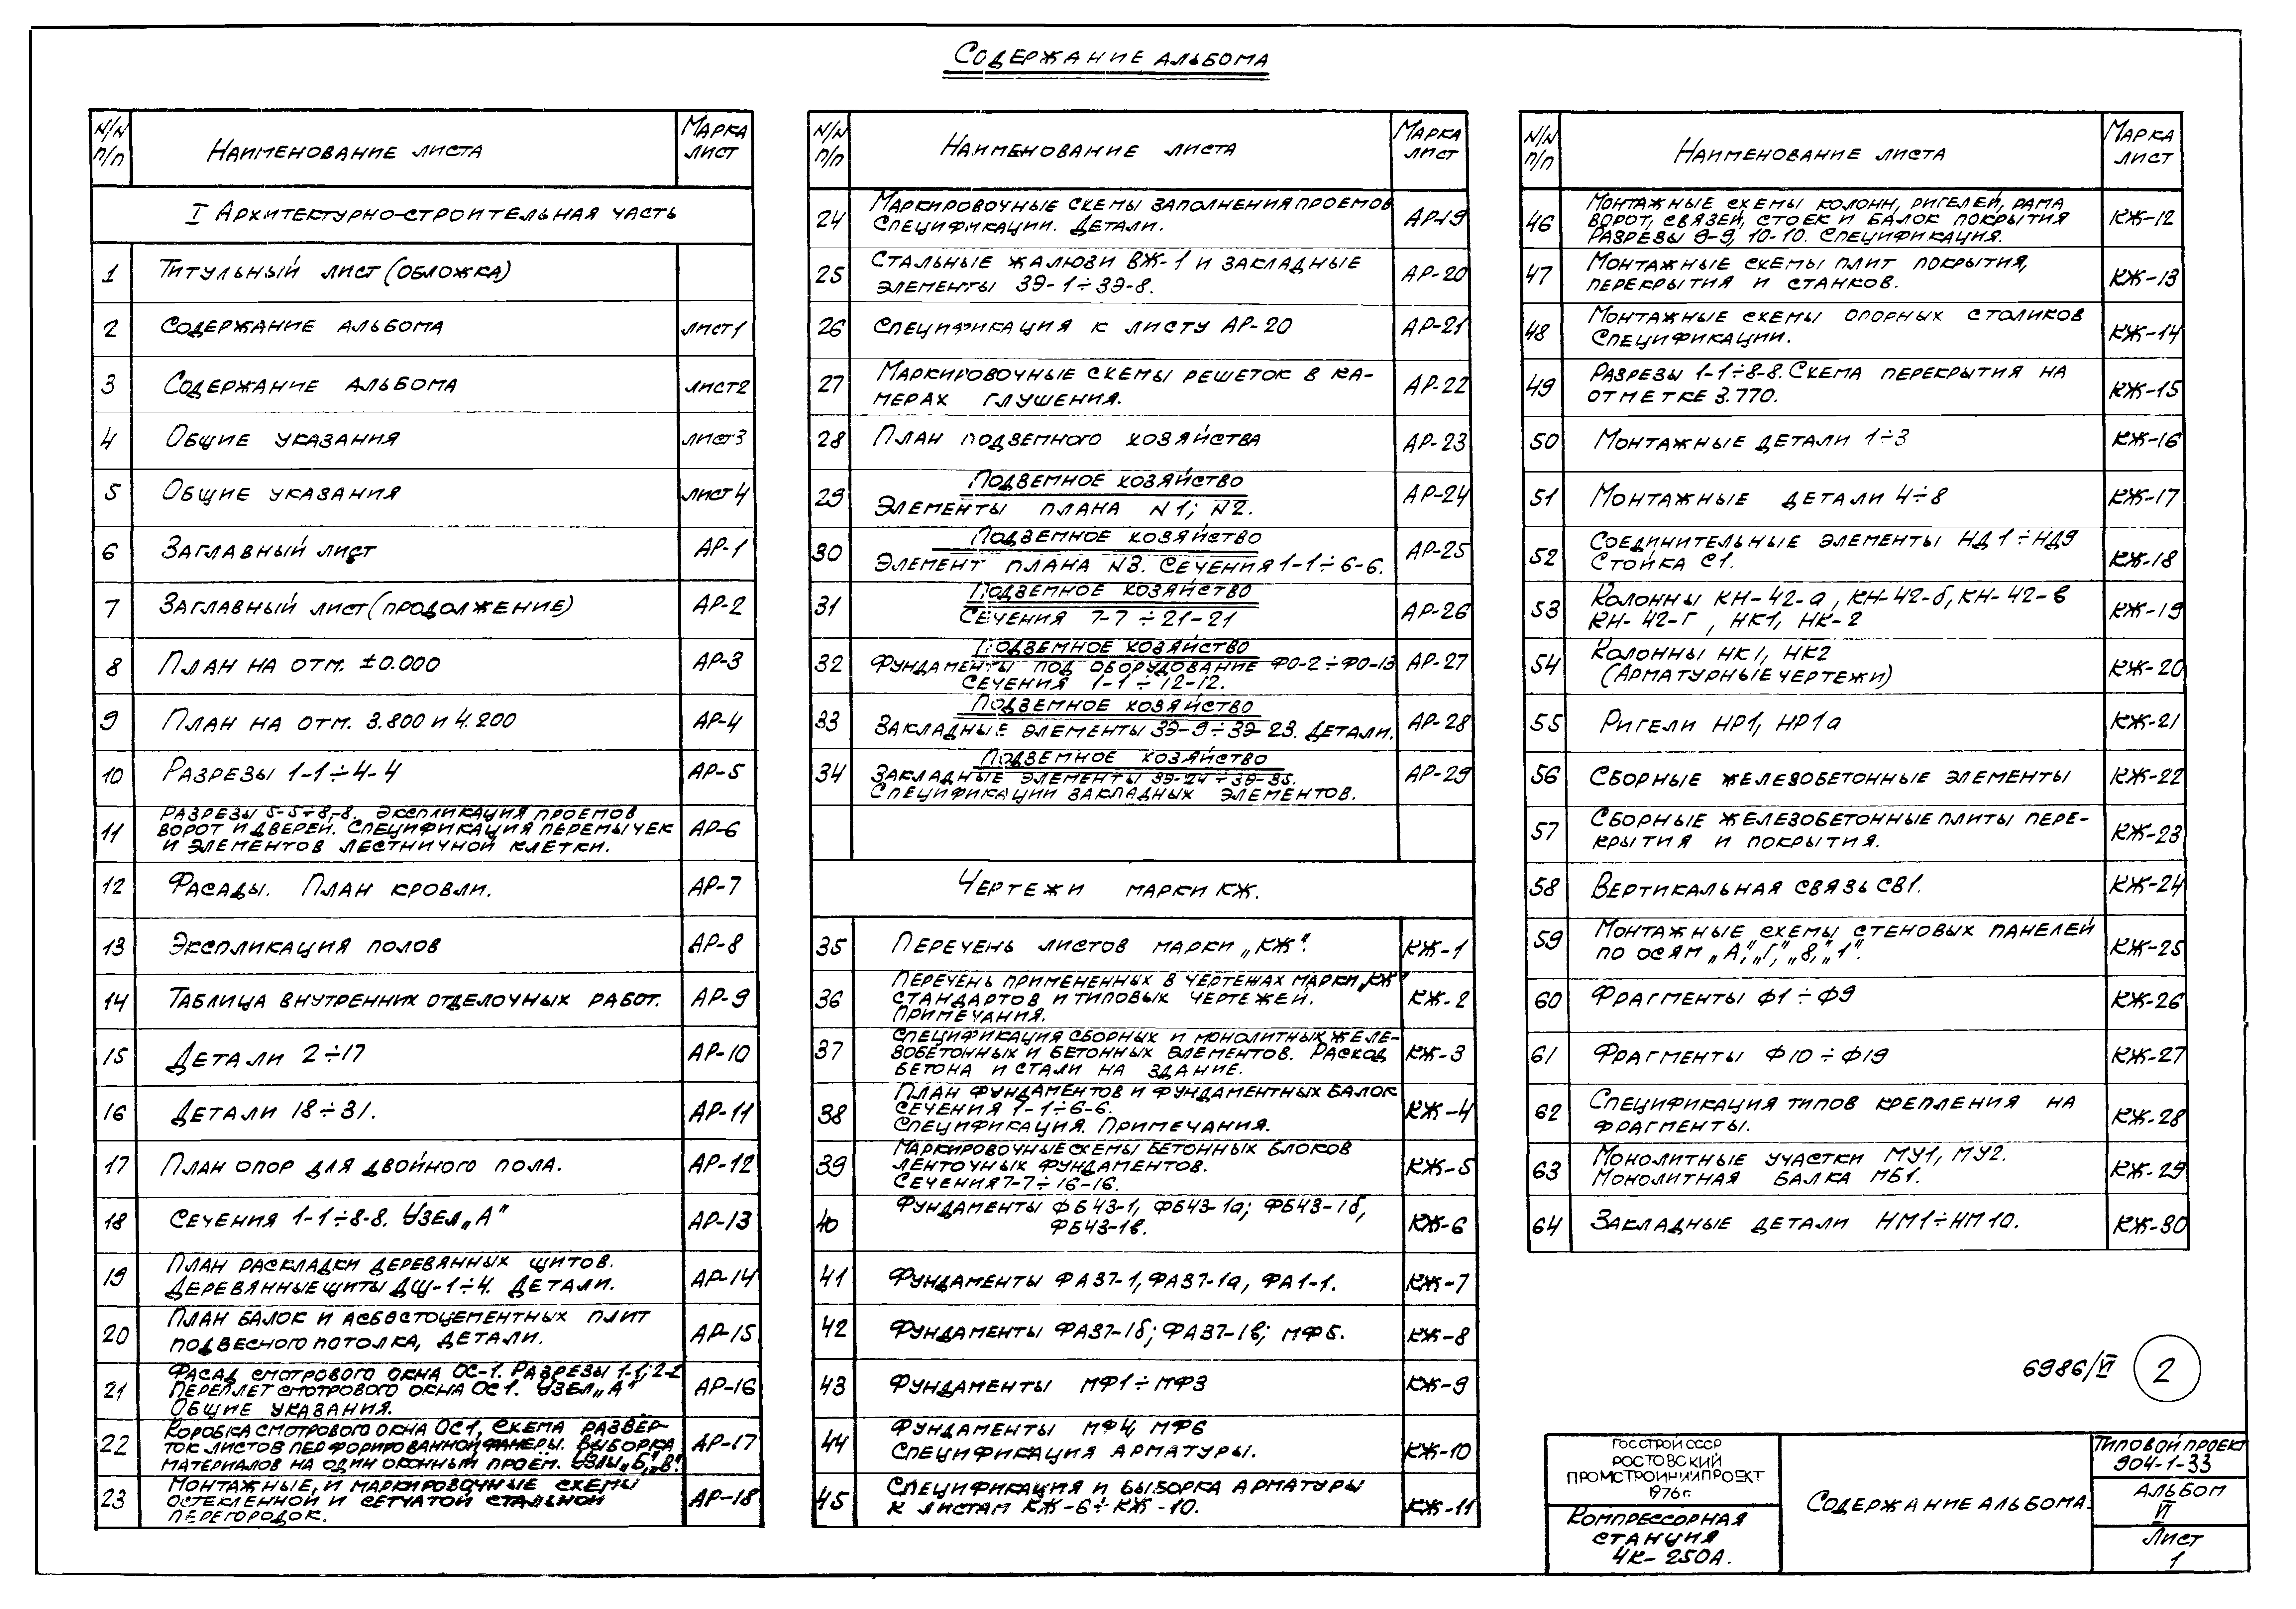 Содержание альбома
N/N п/п
Наименование листа
Марка лист
I Архитектурно-строительная часть
1 Титульный лист (обложка)
2 Содержание альбома лист 1
3 Содержание альбома лист 2
4 Общие указания лист 3
5 Общие указания лист 4
6 Заглавный лист АР-1
7 Заглавный лист (продолжение) АР-2
8 План на отм. ±0.000 АР-3
9 План на отм. 3.800 и 4.200 АР-4
10 Разрезы 1-1÷4-4 АР-5
11 Разрезы 5-5÷8-8. Экспликация проемов
ворот и дверей. Спецификация перемычек АР-6
и элементов лестничной клетки.
12 Фасады. План кровли. АР-7
13 Экспликация полов АР-8
14 Таблица внутренних отделочных работ. АР-9
15 Детали 2÷17 АР-10
16 Детали 18÷31. АР-11
17 План опор для двойного пола. АР-12
18 Сечения 1-1÷8-8. Узел „А" АР-13
19 План раскладки деревянных щитов.
Деревянные щиты ДЩ-1÷4. Детали. АР-14
20 План балок и асбестоцементных плит
подвесного потолка, детали. АР-15
21 Фасад смотрового окна ОС-1. Разрезы 1-1; 2-2
Переплет смотрового окна ОС1. Узел „А" АР-16
Общие указания.
22 Коробка смотрового окна ОС1, схема развер-
ток листов перфорированной фанеры. Выборка АР-17
материалов на один оконный проем. Узлы „Б", „В".
23 Монтажные, и маркировочные схемы
остекленной и сетчатой стальной АР-18
перегородок.
N/N п/п
Наименование листа
Марка лист
24 Маркировочные схемы заполнения проемов
Спецификации. Детали. АР-19
25 Стальные жалюзи ВЖ-1 и закладные
элементы ЗЭ-1÷ЗЭ-8. АР-20
26 Спецификация к листу АР-20 АР-21
27 Маркировочные схемы решеток в ка-
мерах глушения. АР-22
28 План подземного хозяйства АР-23
29 Подземное хозяйство
Элементы плана N1; N2. АР-24
30 Подземное хозяйство
Элемент плана N3. Сечения 1-1÷6-6. АР-25
31 Подземное хозяйство
Сечения 7-7÷21-21 АР-26
32 Подземное хозяйство
Фундаменты под оборудование ФО-2÷ФО-13 АР-27
Сечения 1-1÷12-12.
33 Подземное хозяйство
Закладные элементы ЗЭ-9÷ЗЭ-23. Детали. АР-28
34 Подземное хозяйство
Закладные элементы ЗЭ-24÷ЗЭ-35. АР-29
Спецификации закладных элементов.
Чертежи марки КЖ.
35 Перечень листов марки „КЖ". КЖ-1
36 Перечень примененных в чертежах марки „КЖ"
стандартов и типовых чертежей. КЖ-2
Примечания.
37 Спецификация сборных и монолитных желе-
зобетонных и бетонных элементов. Расход КЖ-3
бетона и стали на здание.
38 План фундаментов и фундаментных балок
Сечения 1-1÷6-6. КЖ-4
Спецификация. Примечания.
39 Маркировочные схемы бетонных блоков
ленточных фундаментов. КЖ-5
Сечения 7-7÷16-16.
40 Фундаменты ФБ43-1, ФБ43-1а; ФБ43-1б,
ФБ43-1в. КЖ-6
41 Фундаменты ФА37-1, ФА37-1а, ФА1-1. КЖ-7
42 Фундаменты ФА37-1б; ФА37-1в; МФ5. КЖ-8
43 Фундаменты МФ1÷МФ3 КЖ-9
44 Фундаменты МФ4, МФ6
Спецификация арматуры. КЖ-10
45 Спецификация и выборка арматуры
к листам КЖ-6÷КЖ-10. КЖ-11
N/N п/п
Наименование листа
Марка лист
46 Монтажные схемы колонн, ригелей, рама
ворот, связей, стоек и балок покрытия КЖ-12
Разрезы 9-9, 10-10. Спецификация.
47 Монтажные схемы плит покрытия,
перекрытия и станков. КЖ-13
48 Монтажные схемы опорных столиков
Спецификации. КЖ-14
49 Разрезы 1-1÷8-8. Схема перекрытия на
отметке 3.770. КЖ-15
50 Монтажные детали 1÷3 КЖ-16
51 Монтажные детали 4÷8 КЖ-17
52 Соединительные элементы НД1÷НД9
Стойка С1. КЖ-18
53 Колонны КН-42-а, КН-42-б, КН-42-в
КН-42-г, НК1, НК-2 КЖ-19
54 Колонны НК1, НК2
(Арматурные чертежи) КЖ-20
55 Ригели НР1, НР1а КЖ-21
56 Сборные железобетонные элементы КЖ-22
57 Сборные железобетонные плиты пере-
крытия и покрытия. КЖ-23
58 Вертикальная связь СВ1. КЖ-24
59 Монтажные схемы стеновых панелей
по осям „А", „Г", „8", „1". КЖ-25
60 Фрагменты Ф1÷Ф9 КЖ-26
61 Фрагменты Ф10÷Ф19 КЖ-27
62 Спецификация типов крепления на
фрагменты. КЖ-28
63 Монолитные участки МУ1, МУ2.
Монолитная балка МБ1. КЖ-29
64 Закладные детали НМ1÷НМ10. КЖ-30
6986/VI 2
Госстрой СССР
Ростовский
Промстройниипроект
1976г.
Компрессорная
станция
4К-250А.
Содержание альбома.
Типовой проект
904-1-33
Альбом
VI
Лист
1